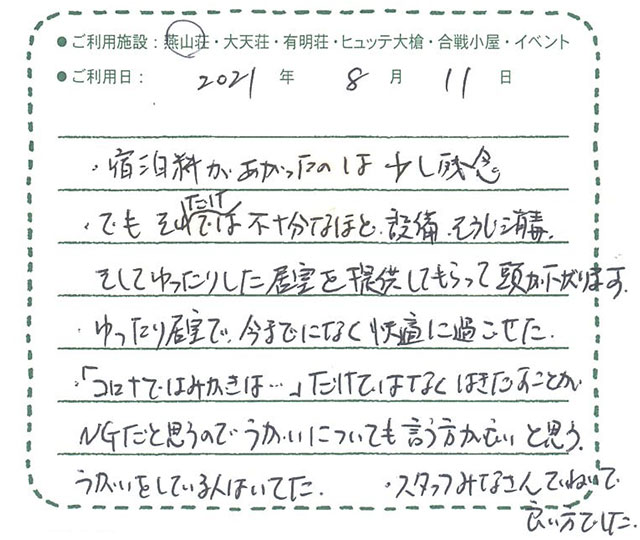 ●ご利用施設：燕山荘・大天荘・有明荘・ヒュッテ大槍・合戦小屋・イベント
●ご利用日： 2021 年 8 月 11 日
・宿泊料があがったのは少し残念。
・でもそれだけでは不十分なほど、設備、そうじ、消毒、
そしてゆったりした居室を提供してもらって頭が下がります。
・ゆったり居室で、今までになく快適に過ごせた。
・「コロナではみがきは…」だけではなくはきだすことが
NGだと思うのでうがいについても言う方が良いと思う。
うがいをしている人はいてた。 ・スタッフみなさんていねいで
良い方でした。